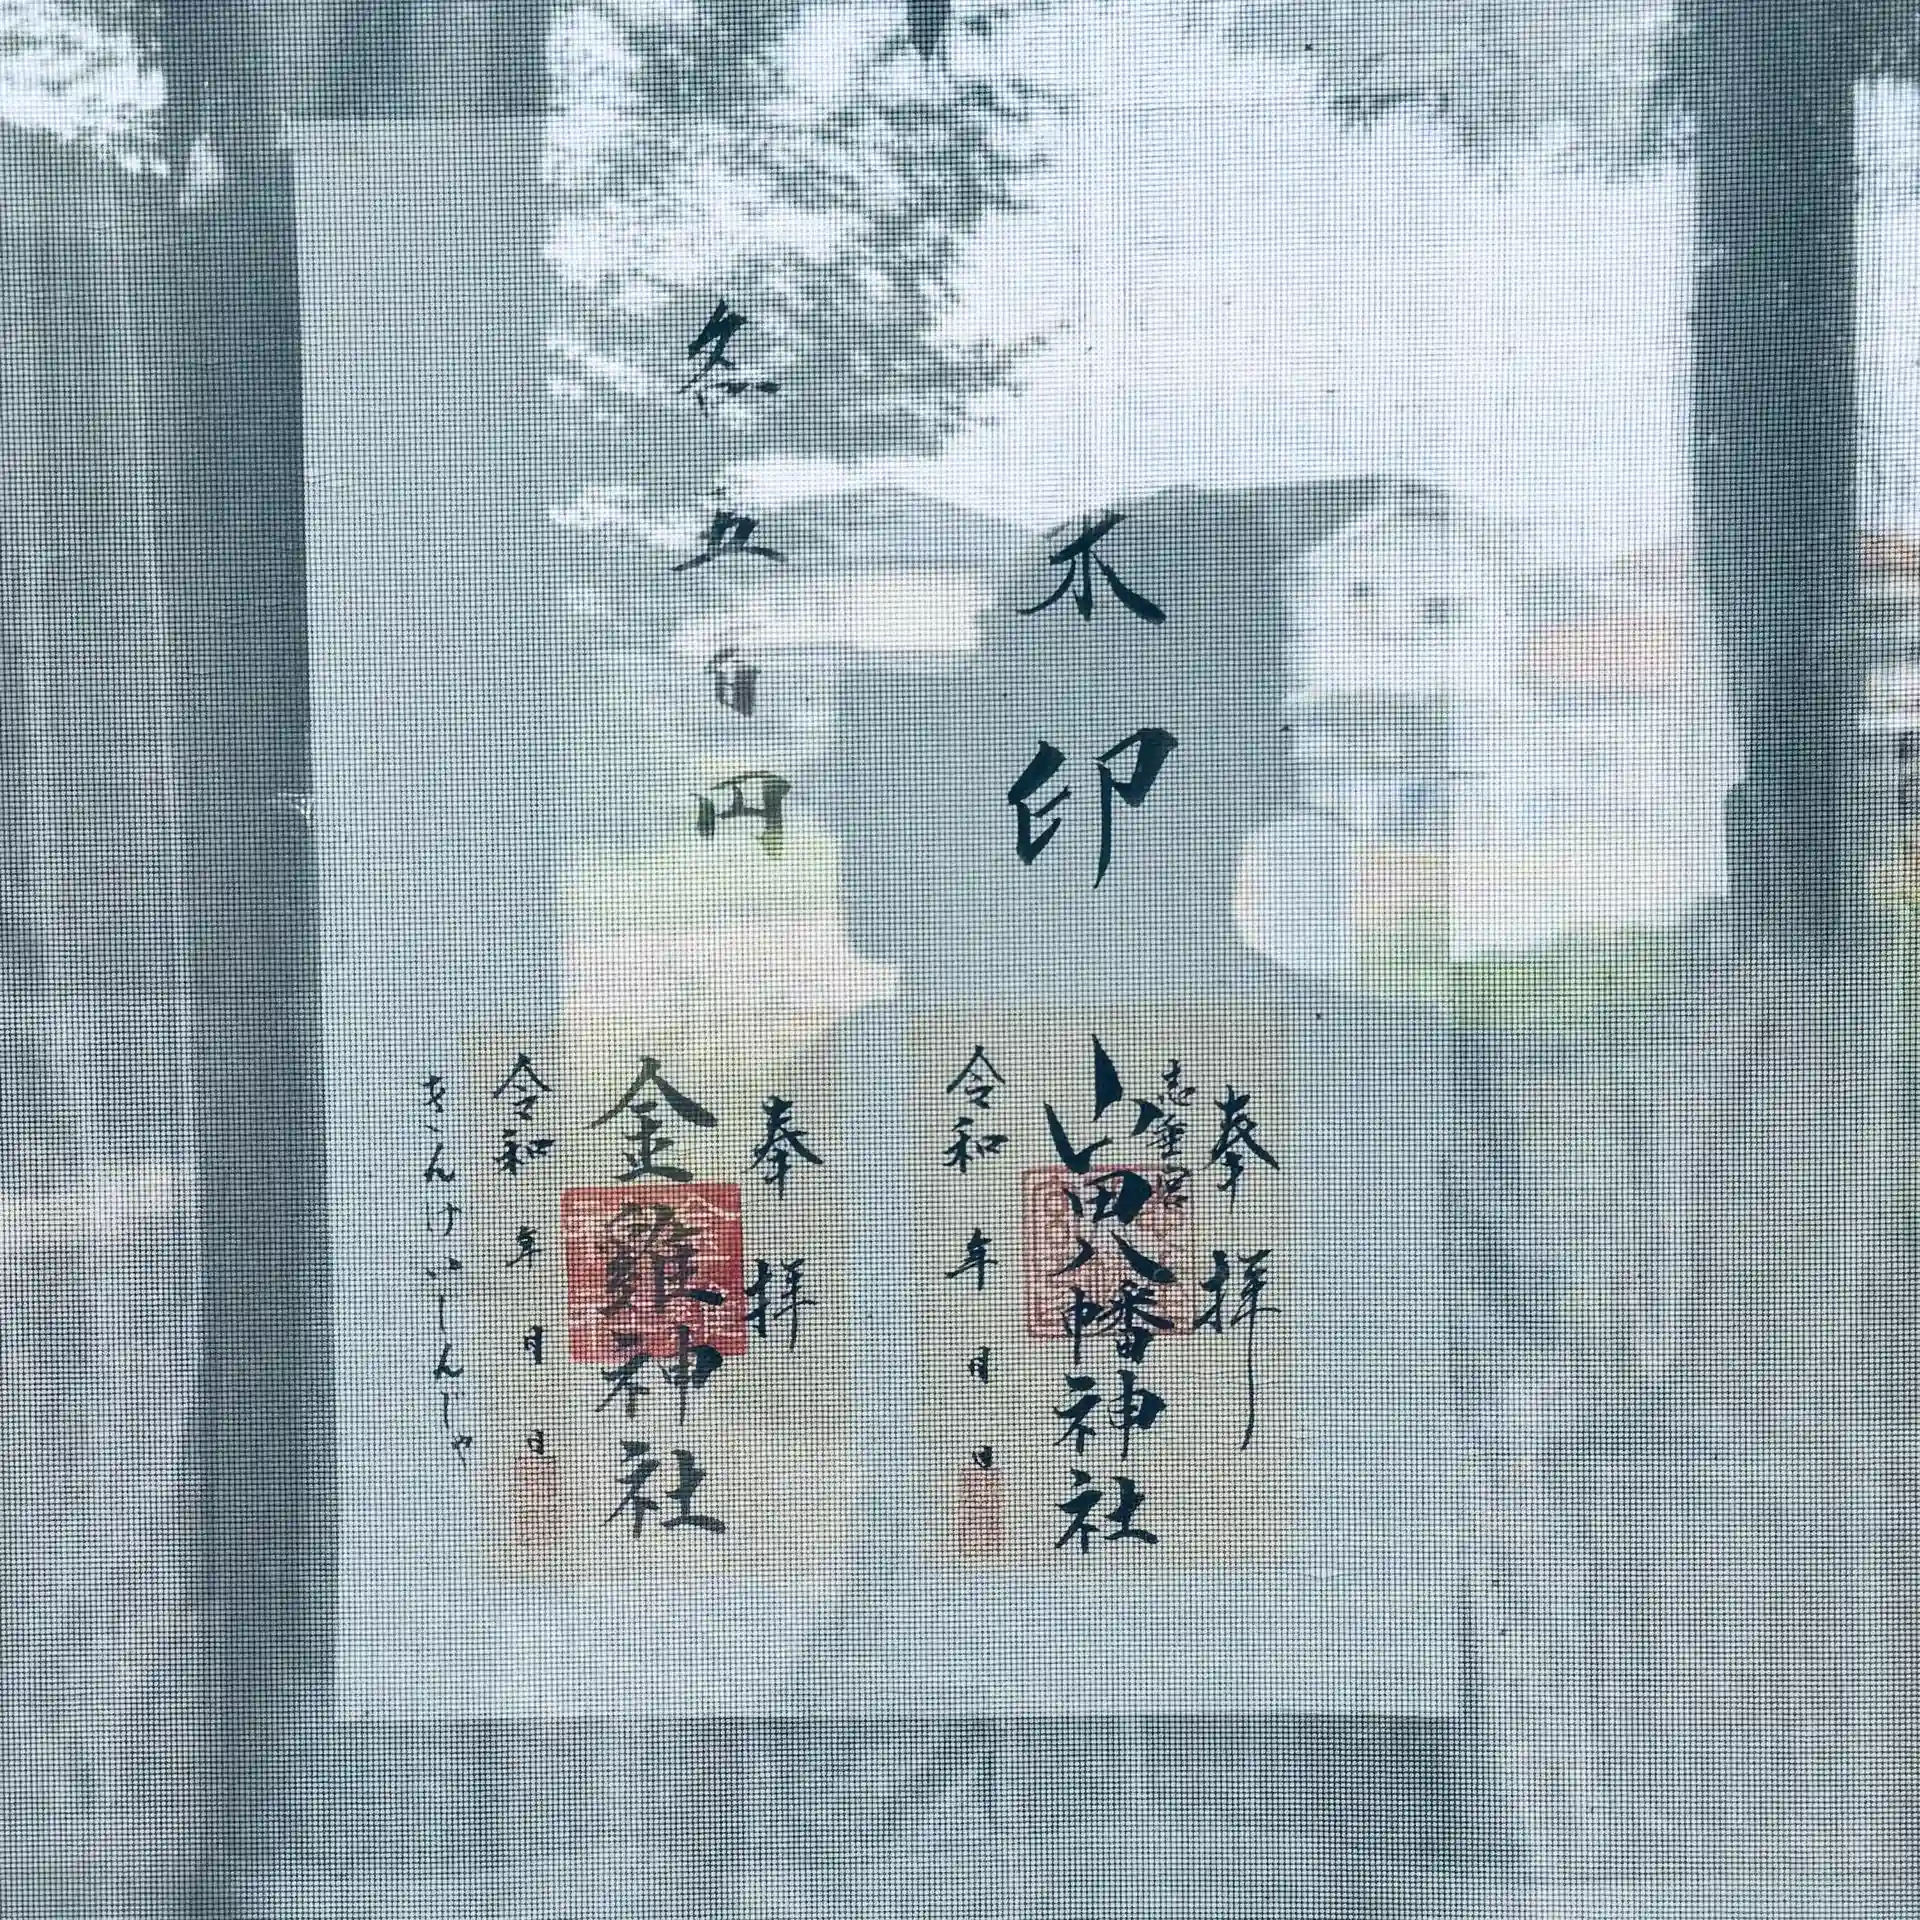 朱印
各五百円
奉拝
山田八幡神社
令和 年 月 日
奉拝
金雞神社
令和 年 月 日
きんけいじんじゃ